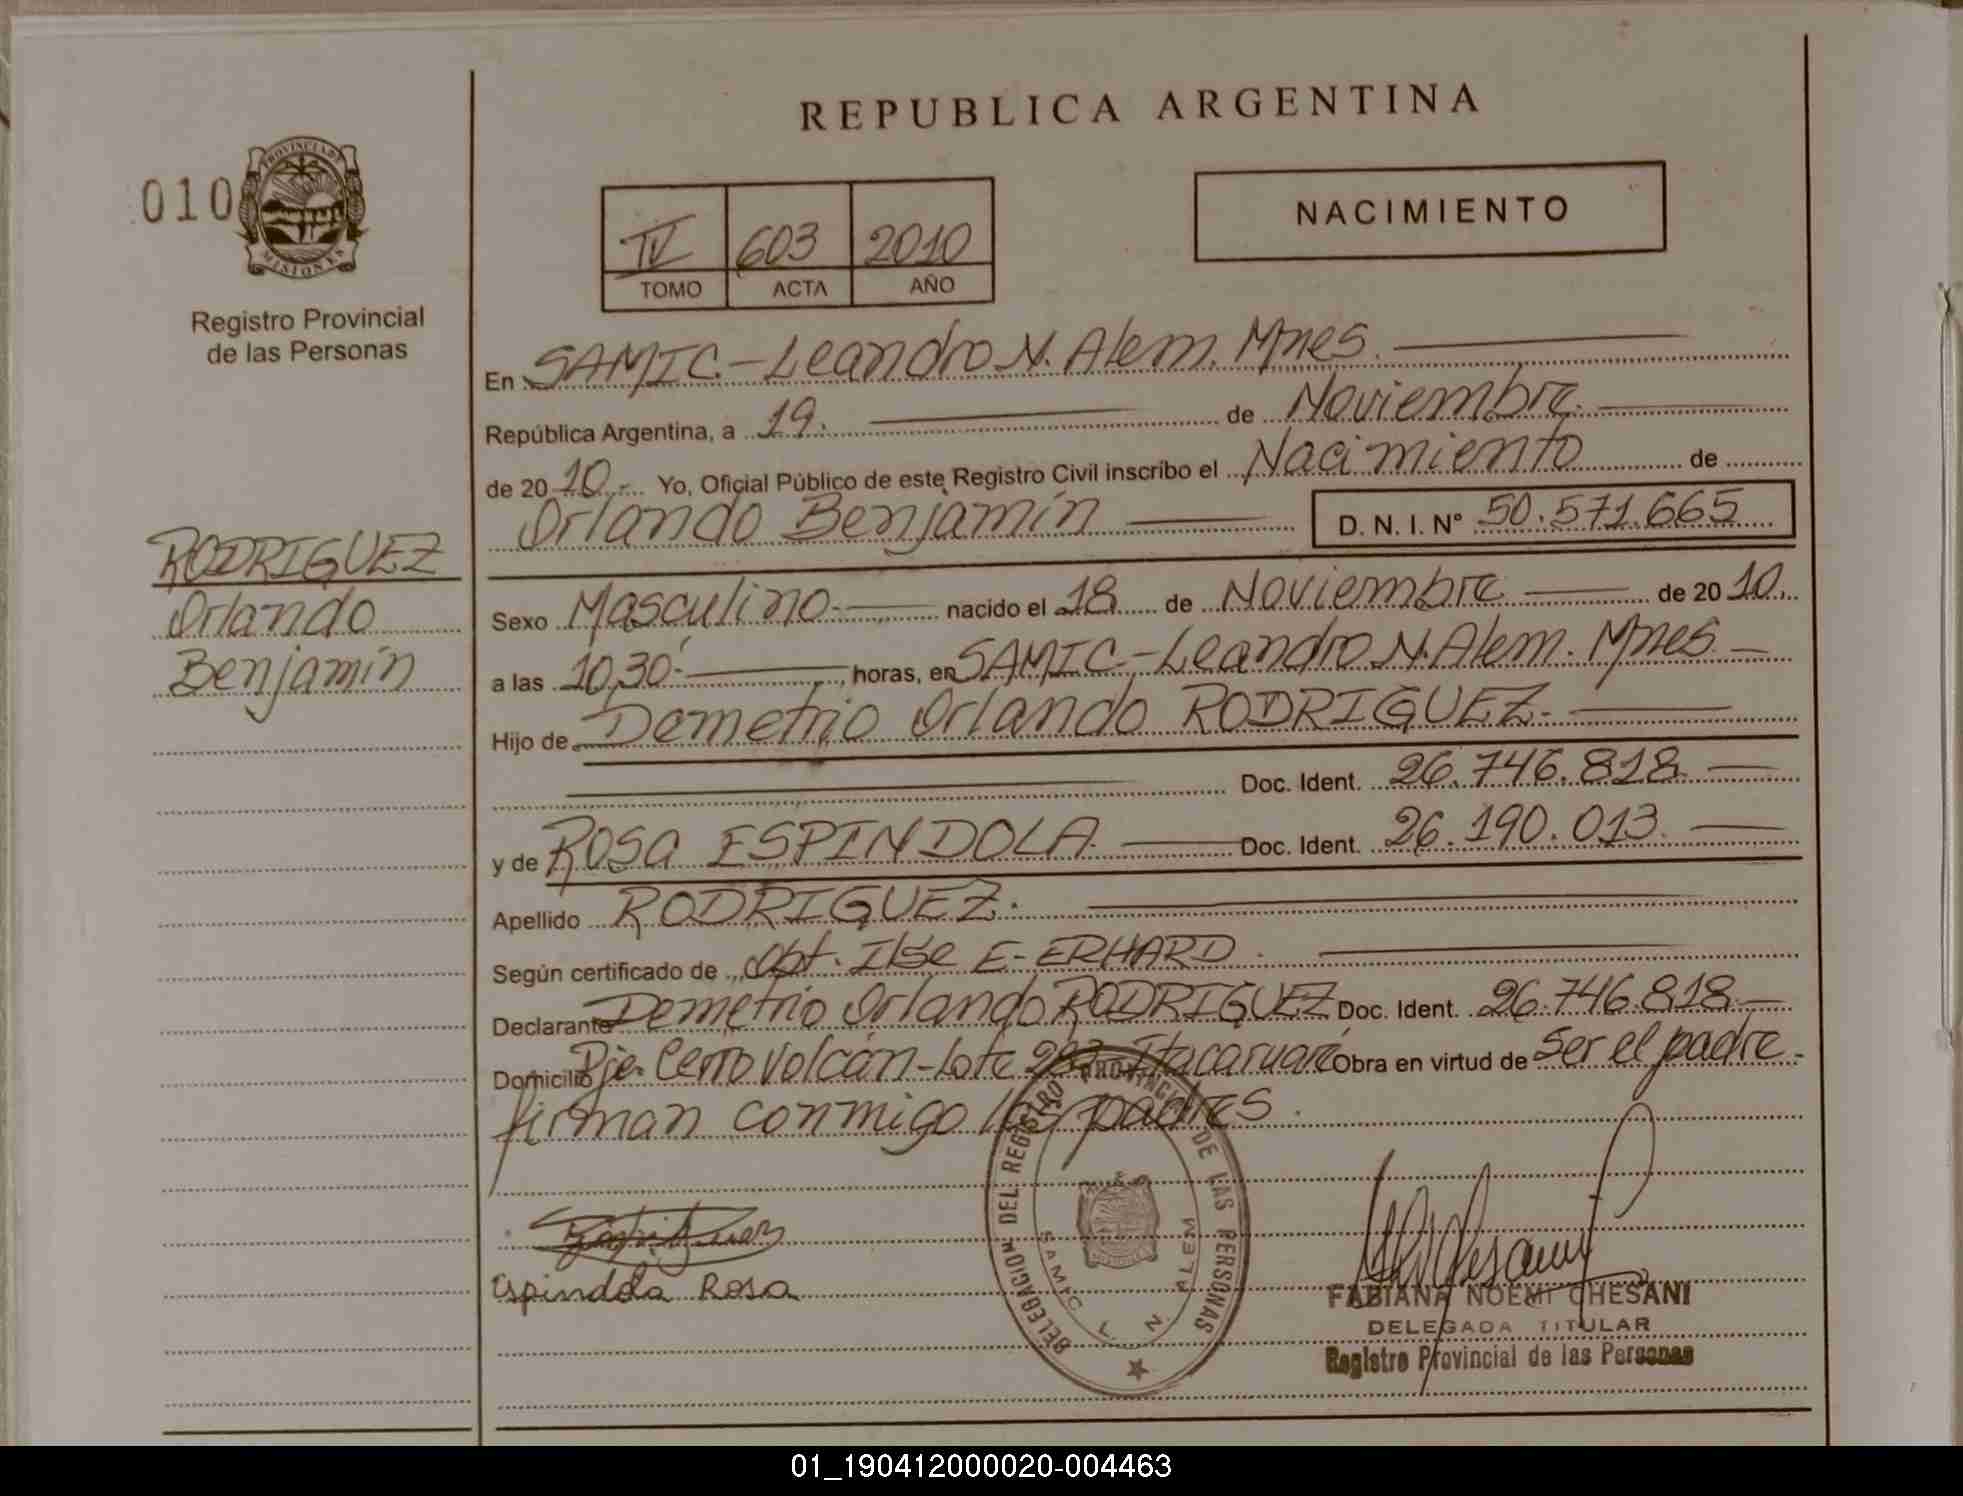 REPUBLICA ARGENTINA
010
PROVINCIA DE
MISIONES
Registro Provincial
de las Personas
IV 603 2010
TOMO ACTA AÑO
NACIMIENTO
En SAMIC.-Leandro N. Alem. Mnes.
República Argentina, a 19. de Noviembre.
de 2010.- Yo, Oficial Público de este Registro Civil inscribo el Nacimiento de
Orlando Benjamín D. N. I. N° 50.571.665
RODRIGUEZ
Orlando
Benjamín
Sexo Masculino.- nacido el 18 de Noviembre de 2010.
a las 10,30'- horas, en SAMIC.-Leandro N. Alem. Mnes.
Hijo de Demetrio Orlando RODRIGUEZ.-
Doc. Ident. 26.746.818
y de ROSA ESPINDOLA. Doc. Ident. 26.190.013.
Apellido RODRIGUEZ.
Según certificado de Obt. Ilse E. ERHARD.
Declarante Demetrio Orlando RODRIGUEZ Doc. Ident. 26.746.818.-
Domicilio Pje. Cerro Volcán-Lote Itacaruaré Obra en virtud de Ser el padre.-
firman conmigo los padres.
Espindola Rosa
DELEGACION DEL REGISTRO PROVINCIAL DE LAS PERSONAS
SAMIC L. N. ALEM
FABIANA NOEMI CHESANI
DELEGADA TITULAR
Registro Provincial de las Personas
01_190412000020-004463